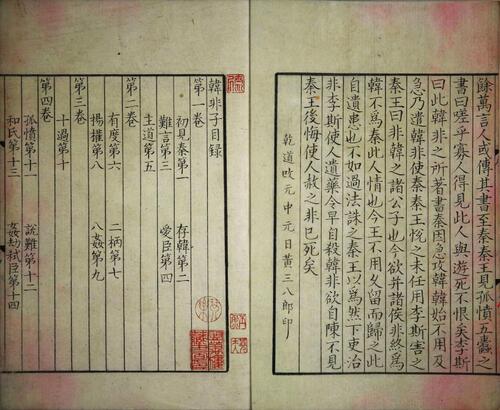 餘萬言人或傳其書至秦秦王見孤憤五蠹之
書曰嗟乎寡人得見此人與遊死不恨矣李斯
曰此韓非之所著書秦因急攻韓韓始不用及
急乃遣韓非使秦秦王悅之未任用李斯害之
秦王曰非韓之諸公子也今欲并諸侯非終為
韓不為秦此人情也今王不用久留而歸之此
自遺患也不如過法誅之秦王以為然下吏治
非李斯使人遺藥令早自殺韓非欲自陳不見
秦王後悔使人赦之非已死矣
乾道改元中元日黃三八郎印
韓非子目錄
第一卷
初見秦第一 存韓第二
難言第三 愛臣第四
主道第五
第二卷
有度第六 二柄第七
揚搉第八 八姦第九
第三卷
十過第十
第四卷
孤憤第十一 說難第十二
和氏第十三 姦劫弒臣第十四